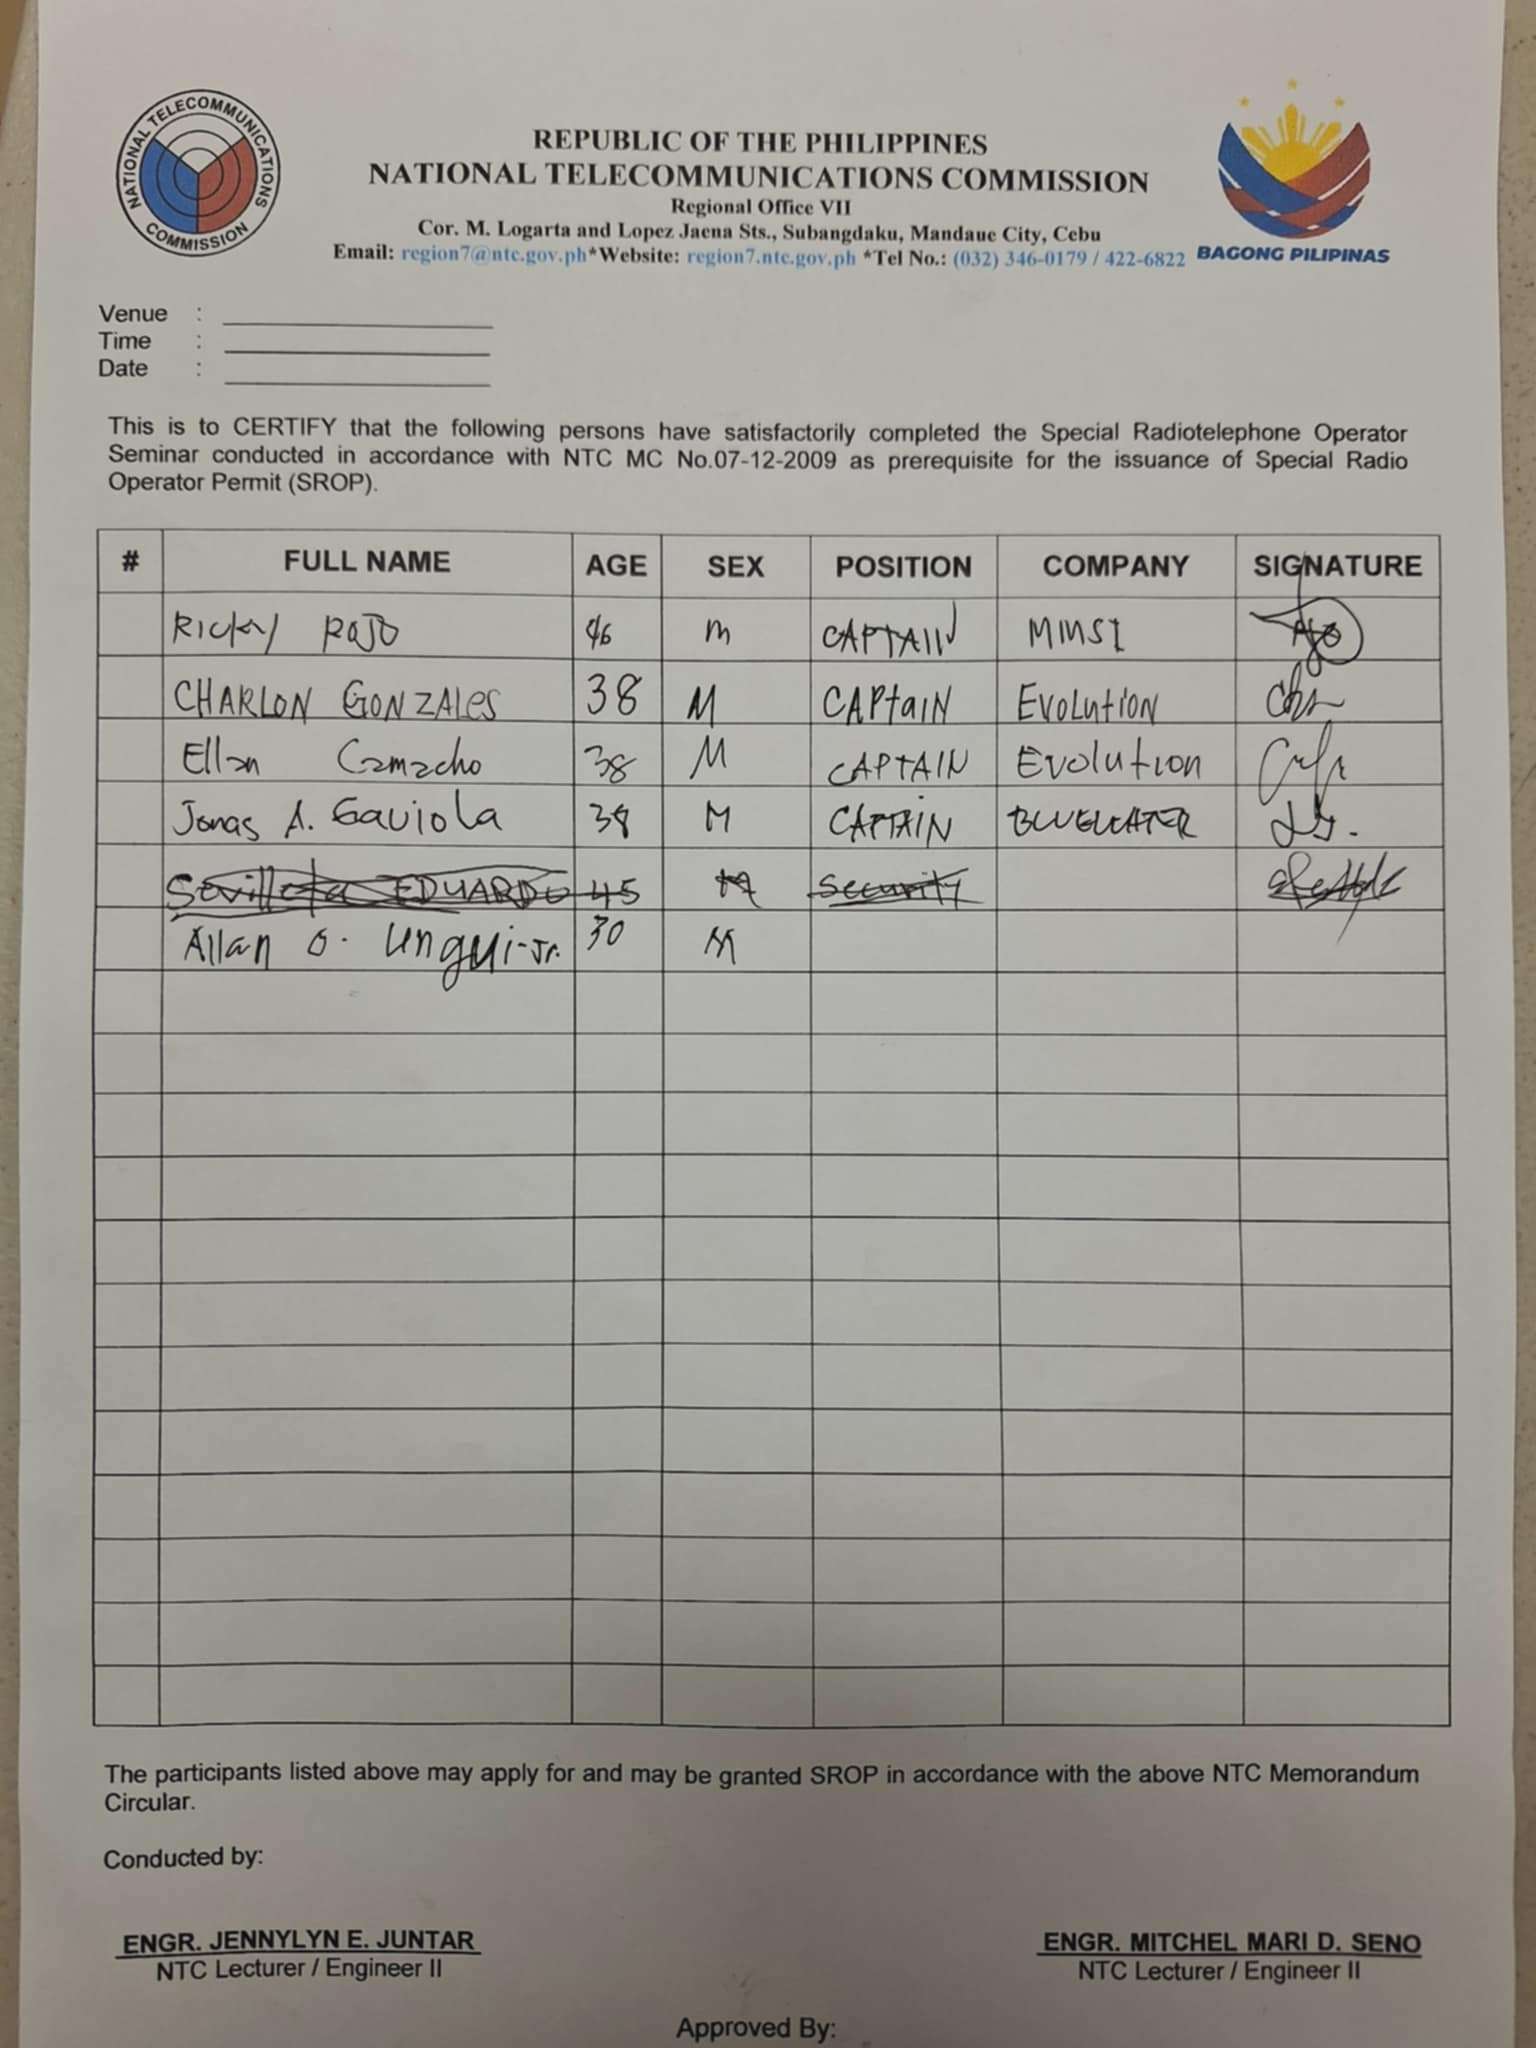 NATIONAL TELECOMMUNICATIONS COMMISSION
REPUBLIC OF THE PHILIPPINES
NATIONAL TELECOMMUNICATIONS COMMISSION
Regional Office VII
Cor. M. Logarta and Lopez Jaena Sts., Subangdaku, Mandaue City, Cebu
Email: region7@ntc.gov.ph*Website: region7.ntc.gov.ph *Tel No.: (032) 346-0179 / 422-6822
BAGONG PILIPINAS
Venue :
Time :
Date :
This is to CERTIFY that the following persons have satisfactorily completed the Special Radiotelephone Operator
Seminar conducted in accordance with NTC MC No.07-12-2009 as prerequisite for the issuance of Special Radio
Operator Permit (SROP).
# FULL NAME AGE SEX POSITION COMPANY SIGNATURE
Ricky ROJO 46 M CAPTAIN MMSI
CHARLON GONZALES 38 M CAPtaIN EVOLutION
Ellan Camacho 38 M CAPTAIN Evolution
Jonas A. Gaviola 38 M CAPTAIN BLUEWATER
EDUARDO 45 M Security
Allan O. Ungui-Jr. 30 M
The participants listed above may apply for and may be granted SROP in accordance with the above NTC Memorandum
Circular.
Conducted by:
ENGR. JENNYLYN E. JUNTAR
NTC Lecturer / Engineer II
ENGR. MITCHEL MARI D. SENO
NTC Lecturer / Engineer II
Approved By: